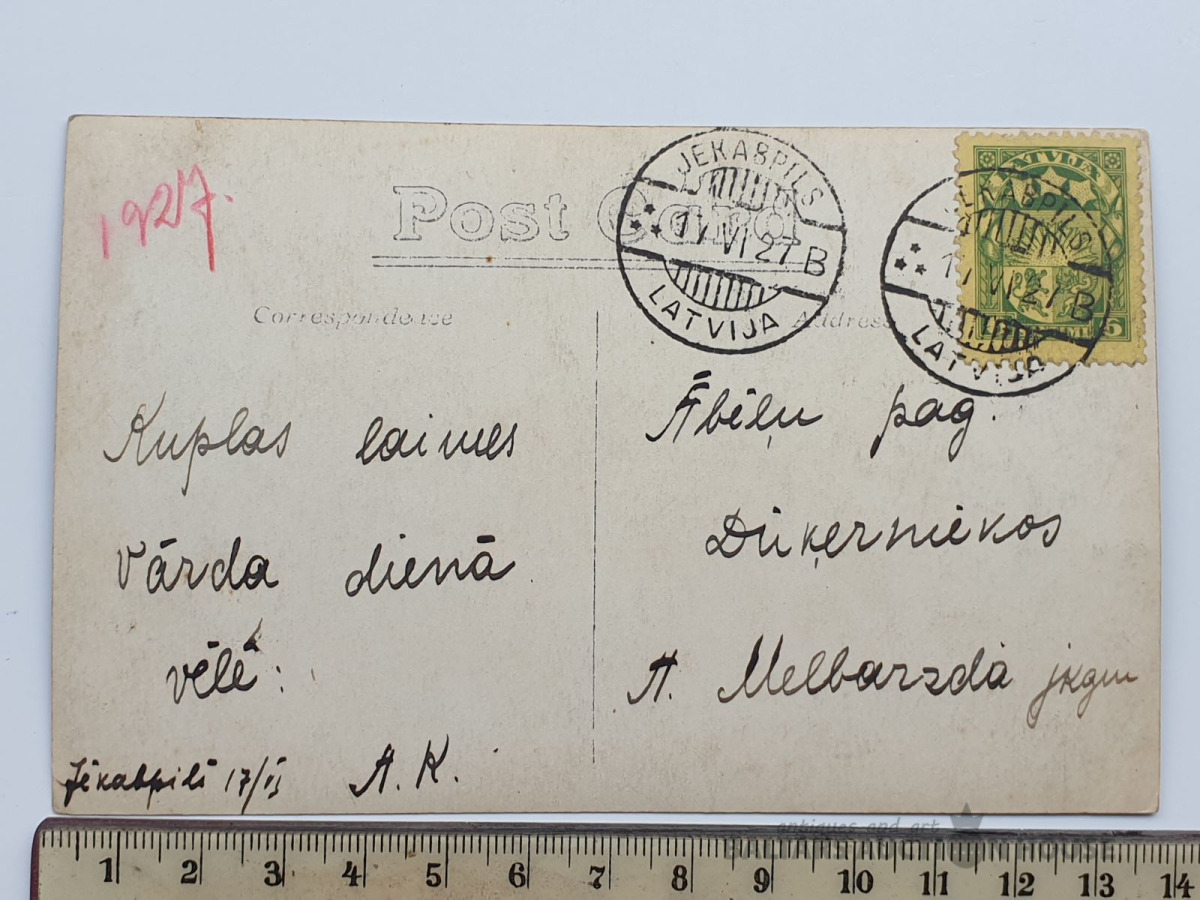 1927.
Post Card
JEKABPILS
17 VI 27 B
LATVIJA
LATVIJA
5
JEKABPILS
VI 27 B
LATVIJA
Correspondence
Address
Kuplas laimes
Vārda dienā
vēlē:
Jēkabpilī 17/VI
A. K.
Ābēļu pag.
Dūķerniekos
A. Melbarzda jkgm
antiques and art
1 2 3 4 5 6 7 8 9 10 11 12 13 14